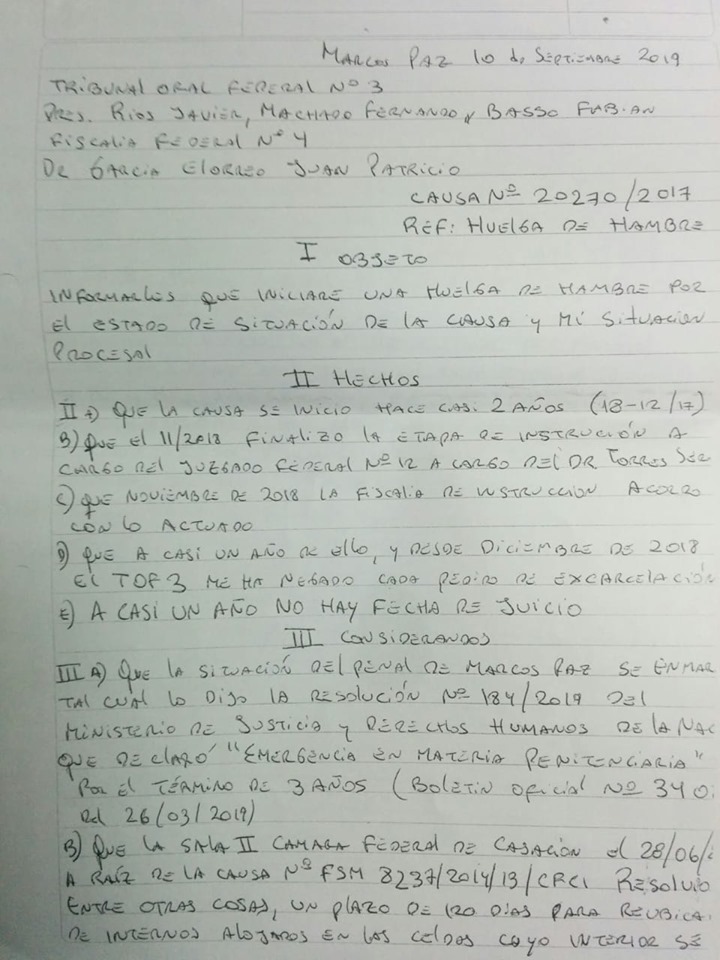 Marcos Paz 10 de Septiembre 2019
Tribunal Oral Federal Nº 3
Pres. Rios Javier, Machado Fernando y Basso Fabian
Fiscalia Federal Nº 4
Dr Garcia Elorreo Juan Patricio
Causa Nº 20270/2017
Ref: Huelga de Hambre
I Objeto
Informarles que iniciare una huelga de hambre por
el estado de situación de la causa y mi situacion
procesal
II Hechos
II A) Que la causa se inicio hace casi 2 años (18-12/17)
B) Que el 11/2018 finalizo la etapa de instrución a
cargo del Juzgado Federal Nº 12 a cargo del Dr Torres Ser
C) Que Noviembre de 2018 la Fiscalia de instruccion acorro
con lo actuado
D) Que a casi un año de ello, y desde Diciembre de 2018
el TOF 3 me ha negado cada pedido de excarcelación
E) A casi un año no hay fecha de juicio
III Considerandos
III A) Que la situación del penal de Marcos Paz se enmar
tal cual lo dijo la Resolución Nº 184/2019 del
Ministerio de Justicia y Derechos Humanos de la Nac
que declaró "Emergencia en Materia Penitenciaria"
por el término de 3 años (Boletin Oficial Nº 340
del 26/03/2019)
B) Que la Sala II Camara Federal de Casación el 28/06/
a raíz de la causa Nº FSM 8237/2014/13/CFC1 resolvio
entre otras cosas, un plazo de 120 dias para reubica
de internos alojados en las celdas cuyo interior se